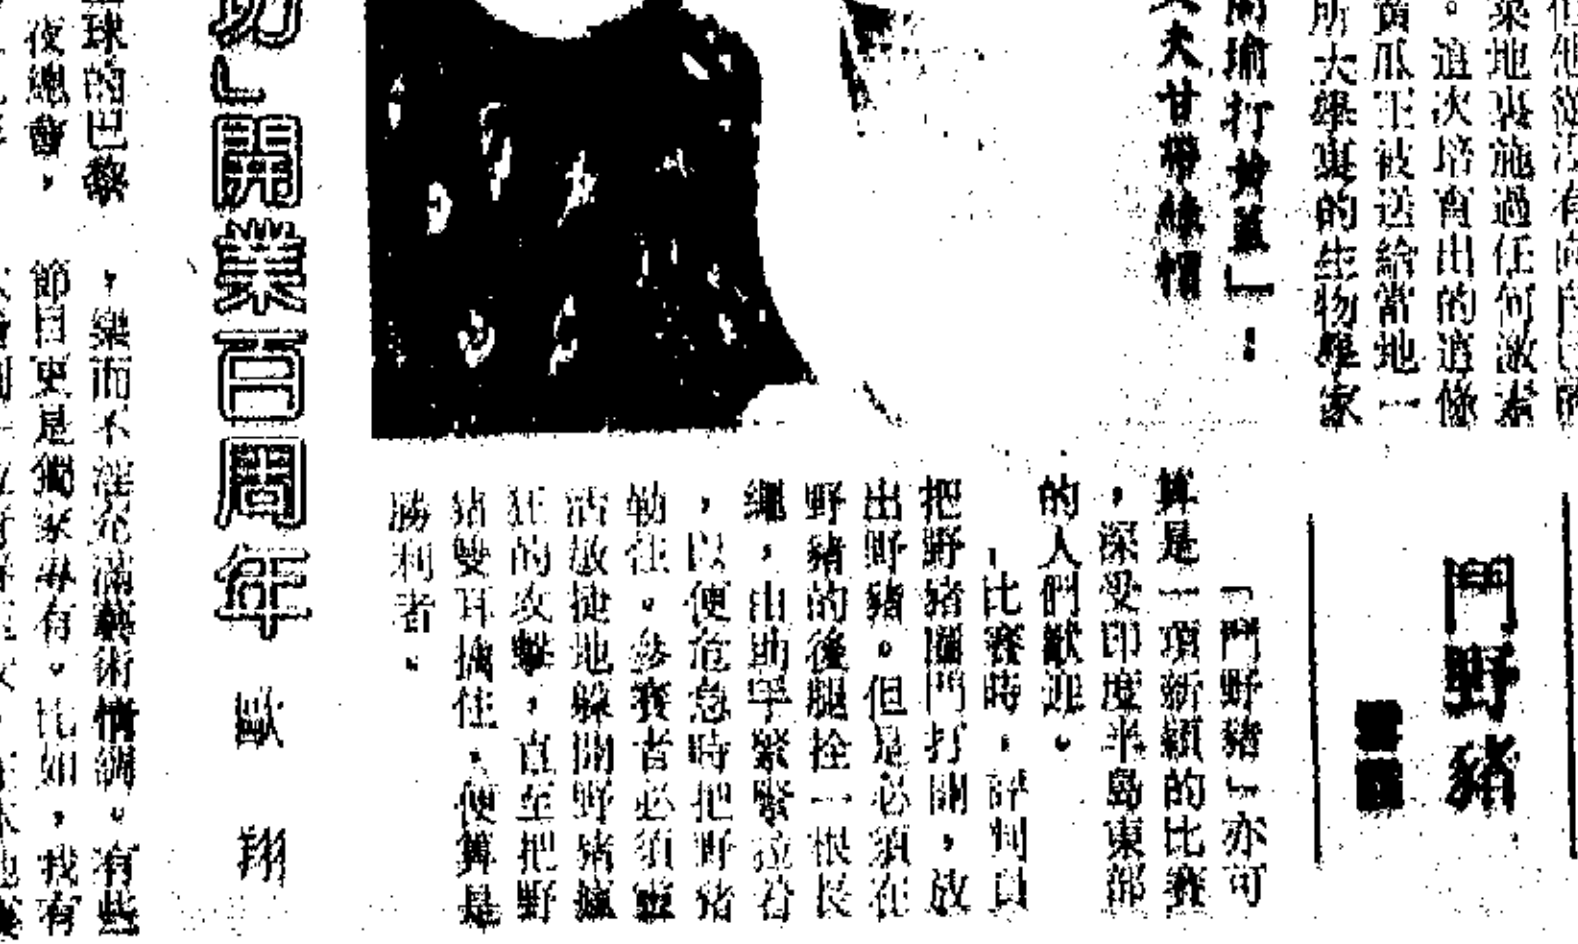 但他並沒有向自己的
菜地裏施過任何激素
。這次培育出的這條
黃瓜王被送給當地一
所大學裏的生物學家
周瑜打黃蓋」：
丈夫甘帶綠帽
鬥野豬
「鬥野豬」亦可
算是一項新穎的比賽
，深受印度半島東部
的人們歡迎。
比賽時，評判員
把野豬圈門打開，放
出野豬。但是必須在
野豬的後腿拴一根長
繩，由助手緊緊拉着
，以便危急時把野豬
勒住。參賽者必須靈
活敏捷地躲開野豬瘋
狂的攻擊，直至把野
豬雙耳擒住，便算是
勝利者。
」開業百周年
歐翔
球的巴黎
夜總會，
，樂而不淫充滿藝術情調。有些
節目更是獨家專有。比如，我有